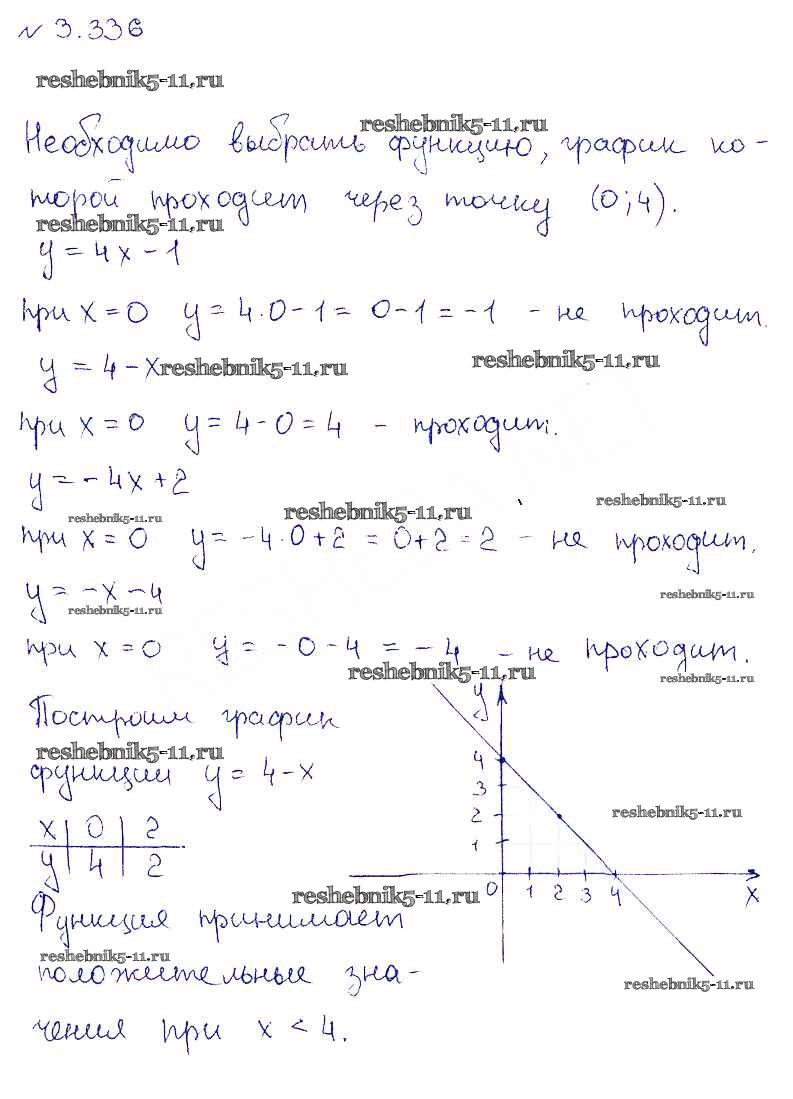 № 3.336
reshebnik5-11.ru
reshebnik5-11.ru
Необходимо выбрать функцию, график ко-
торой проходит через точку (0;4).
reshebnik5-11.ru
y = 4x - 1
при x = 0 y = 4·0 - 1 = 0 - 1 = -1 - не проходит.
y = 4 - x
reshebnik5-11.ru reshebnik5-11.ru
при x = 0 y = 4 - 0 = 4 - проходит.
y = -4x + 2
reshebnik5-11.ru reshebnik5-11.ru reshebnik5-11.ru
при x = 0 y = -4·0 + 2 = 0 + 2 = 2 - не проходит.
y = -x - 4
reshebnik5-11.ru reshebnik5-11.ru
при x = 0 y = -0 - 4 = -4 - не проходит.
reshebnik5-11.ru reshebnik5-11.ru
Построим график
reshebnik5-11.ru
функции y = 4 - x
x | 0 | 2
y | 4 | 2
y
4
3
2
1
0 1 2 3 4 x
reshebnik5-11.ru
reshebnik5-11.ru
Функция принимает
reshebnik5-11.ru
положительные зна-
reshebnik5-11.ru
чения при x < 4.